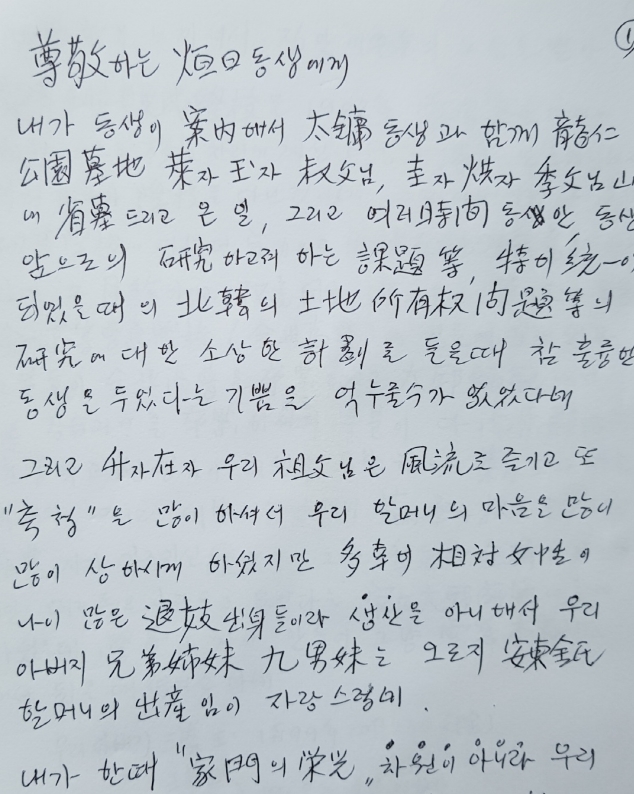 ①
尊敬하는 烜日 동생에게
내가 동생이 案內해서 太鏞 동생과 함께 龍仁
公園墓地 萊자 玉자 叔父님, 圭자 烘자 季父님 山
에 省墓 드리고 온 일, 그리고 여러 時間 동안 동생
앞으로의 研究하고저 하는 課題等, 特히 統一이
되었을때의 北韓의 土地 所有权 问題等의
研究에 대한 소상한 計劃을 들을때 참 훌륭한
동생을 두었다는 기쁨을 억누를수가 없었다네
그리고 升자 在자 우리 祖父님은 風流로 즐기고 또
"축첩"을 많이 하셔서 우리 할머니의 마음을 많이
많이 상하시게 하셨지만 多幸히 相対 女性이
나이 많은 退妓 出身들이라 생산을 아니해서 우리
아버지 兄弟姉妹 九男妹는 오로지 安東金氏
할머니의 出産임이 자랑스럽네.
내가 한때 "家門의 栄光" 차원이 아니라 우리